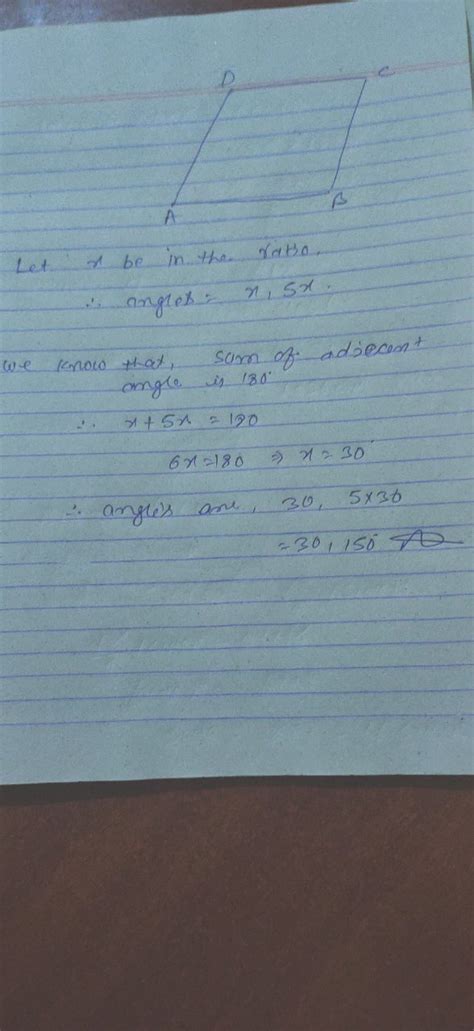 D C
A B
Let x be in the ratio.
∴ angles = x, 5x.
we know that, sum of adjecent
angle is 180°
∴ x + 5x = 180
6x = 180 ⇒ x = 30°
∴ angles are, 30, 5x30
= 30, 150°